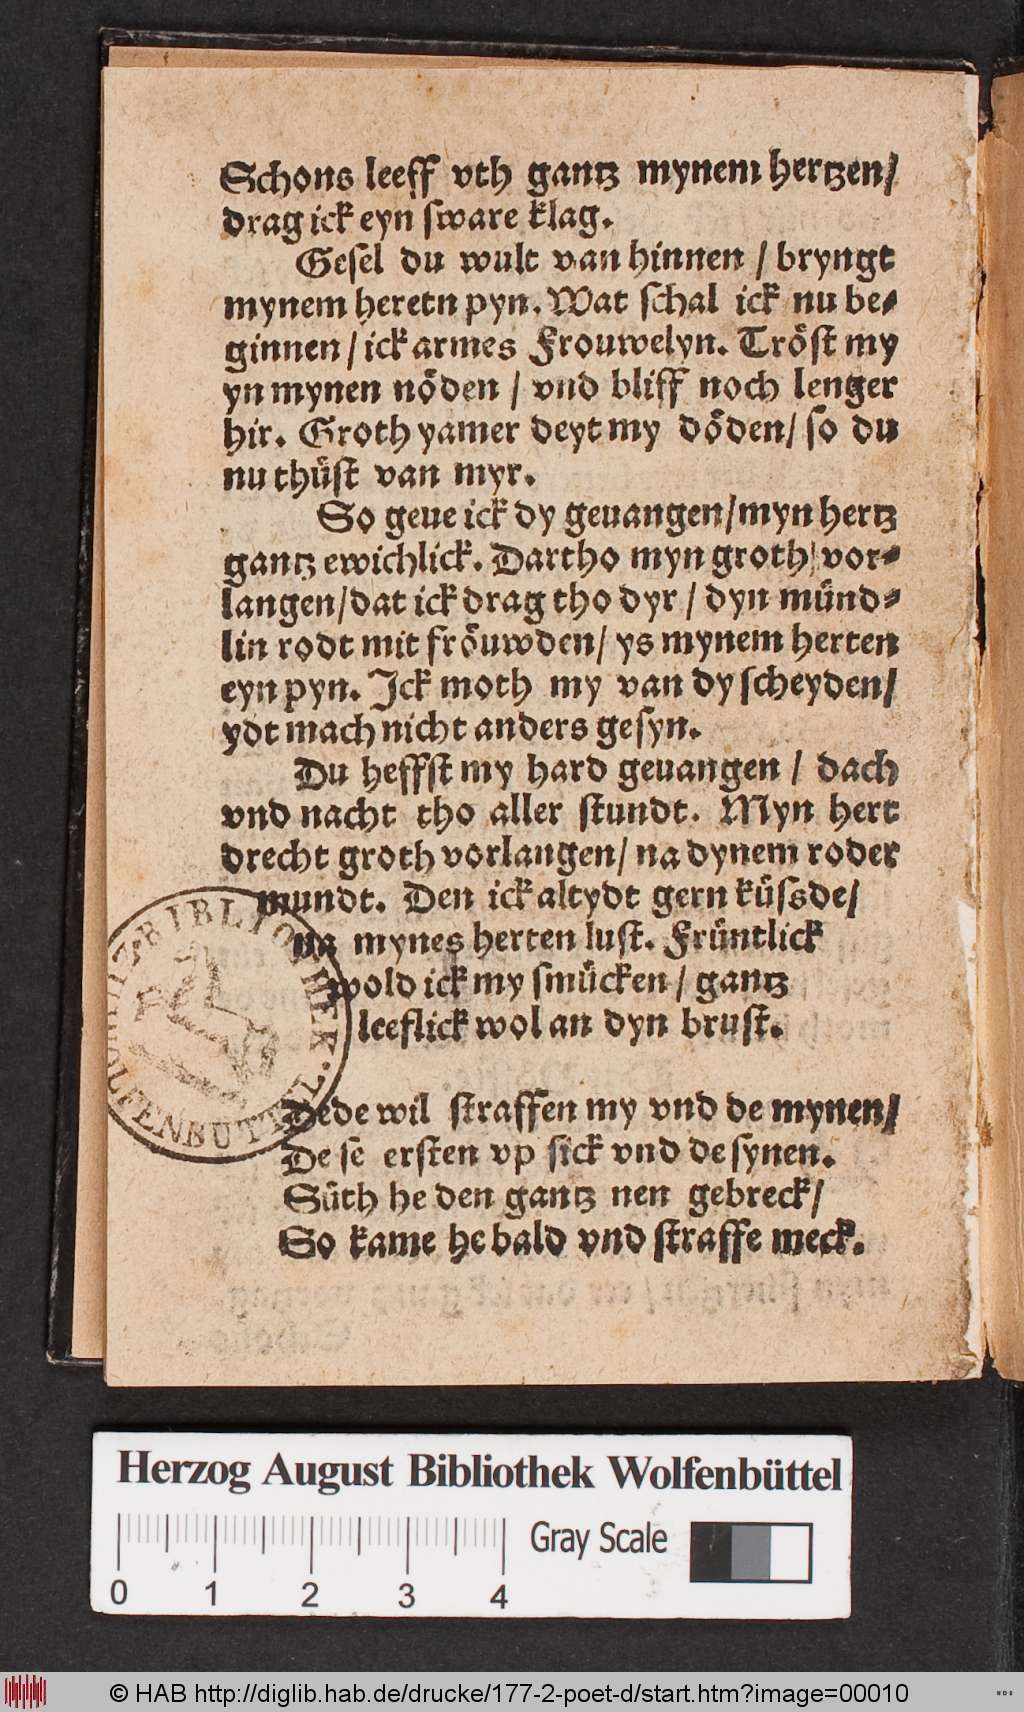 Schons leeff vth gantz mynem hertzen/
drag ick eyn sware klag.
Gesel du wult van hinnen / bryngt
mynem heretn pyn. Wat schal ick nu be⸗
ginnen / ick armes Frouwelyn. Tröst my
yn mynen nöden / vnd bliff noch lenger
hir. Groth yamer deyt my döden/ so du
nu thüst van myr.
So geue ick dy geuangen/myn hertz
gantz ewichlick. Dartho myn groth vor⸗
langen/dat ick drag tho dyr / dyn münd⸗
lin rodt mit fröuwden/ ys mynem herten
eyn pyn. Jck moth my van dy scheyden/
ydt mach nicht anders gesyn.
Du heffst my hard geuangen / dach
vnd nacht tho aller stundt. Myn hert
drecht groth vorlangen/ na dynem roder
mundt. Den ick altydt gern küssde/
na mynes herten lust. Früntlick
wold ick my smücken / gantz
leeflick wol an dyn brust.
Dede wil straffen my vnd de mynen/
De se ersten vp sick vnd de synen.
Süth he den gantz nen gebreck/
So kame he bald vnd straffe meck.
BIBLIOTHEK.
WOLFENBÜTTEL
Herzog August Bibliothek Wolfenbüttel
Gray Scale
0 1 2 3 4
© HAB http://diglib.hab.de/drucke/177-2-poet-d/start.htm?image=00010